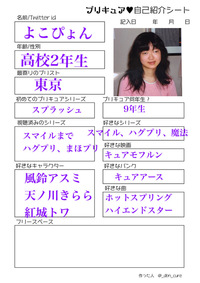 プリキュア♥自己紹介シート
記入日 年 月 日
名前/Twitter id
よこぴょん
年齢/性別
高校2年生
最寄りのプリスト
東京
初めてのプリキュアシリーズ
スプラッシュ
プリキュア何年生?
9年生
視聴済みのシリーズ
スマイルまで
ハグプリ、まほプリ
好きなシリーズ
スマイル、ハグプリ、魔法
好きな映画
キュアモフルン
好きなキャラクター
風鈴アスミ
天ノ川きらら
紅城トワ
好きなバンク
キュアアース
好きな曲
ホットスプリング
ハイエンドスター
フリースペース
作った人